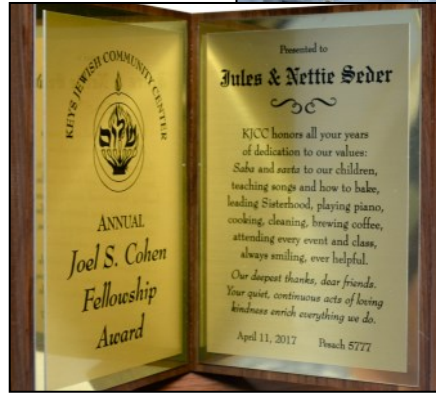 KEYS JEWISH COMMUNITY CENTER
שלום
ANNUAL
Joel S. Cohen
Fellowship
Award
Presented to
Jules & Nettie Seder
KJCC honors all your years
of dedication to our values:
Saba and savta to our children,
teaching songs and how to bake,
leading Sisterhood, playing piano,
cooking, cleaning, brewing coffee,
attending every event and class,
always smiling, ever helpful.
Our deepest thanks, dear friends.
Your quiet, continuous acts of loving
kindness enrich everything we do.
April 11, 2017 Pesach 5777